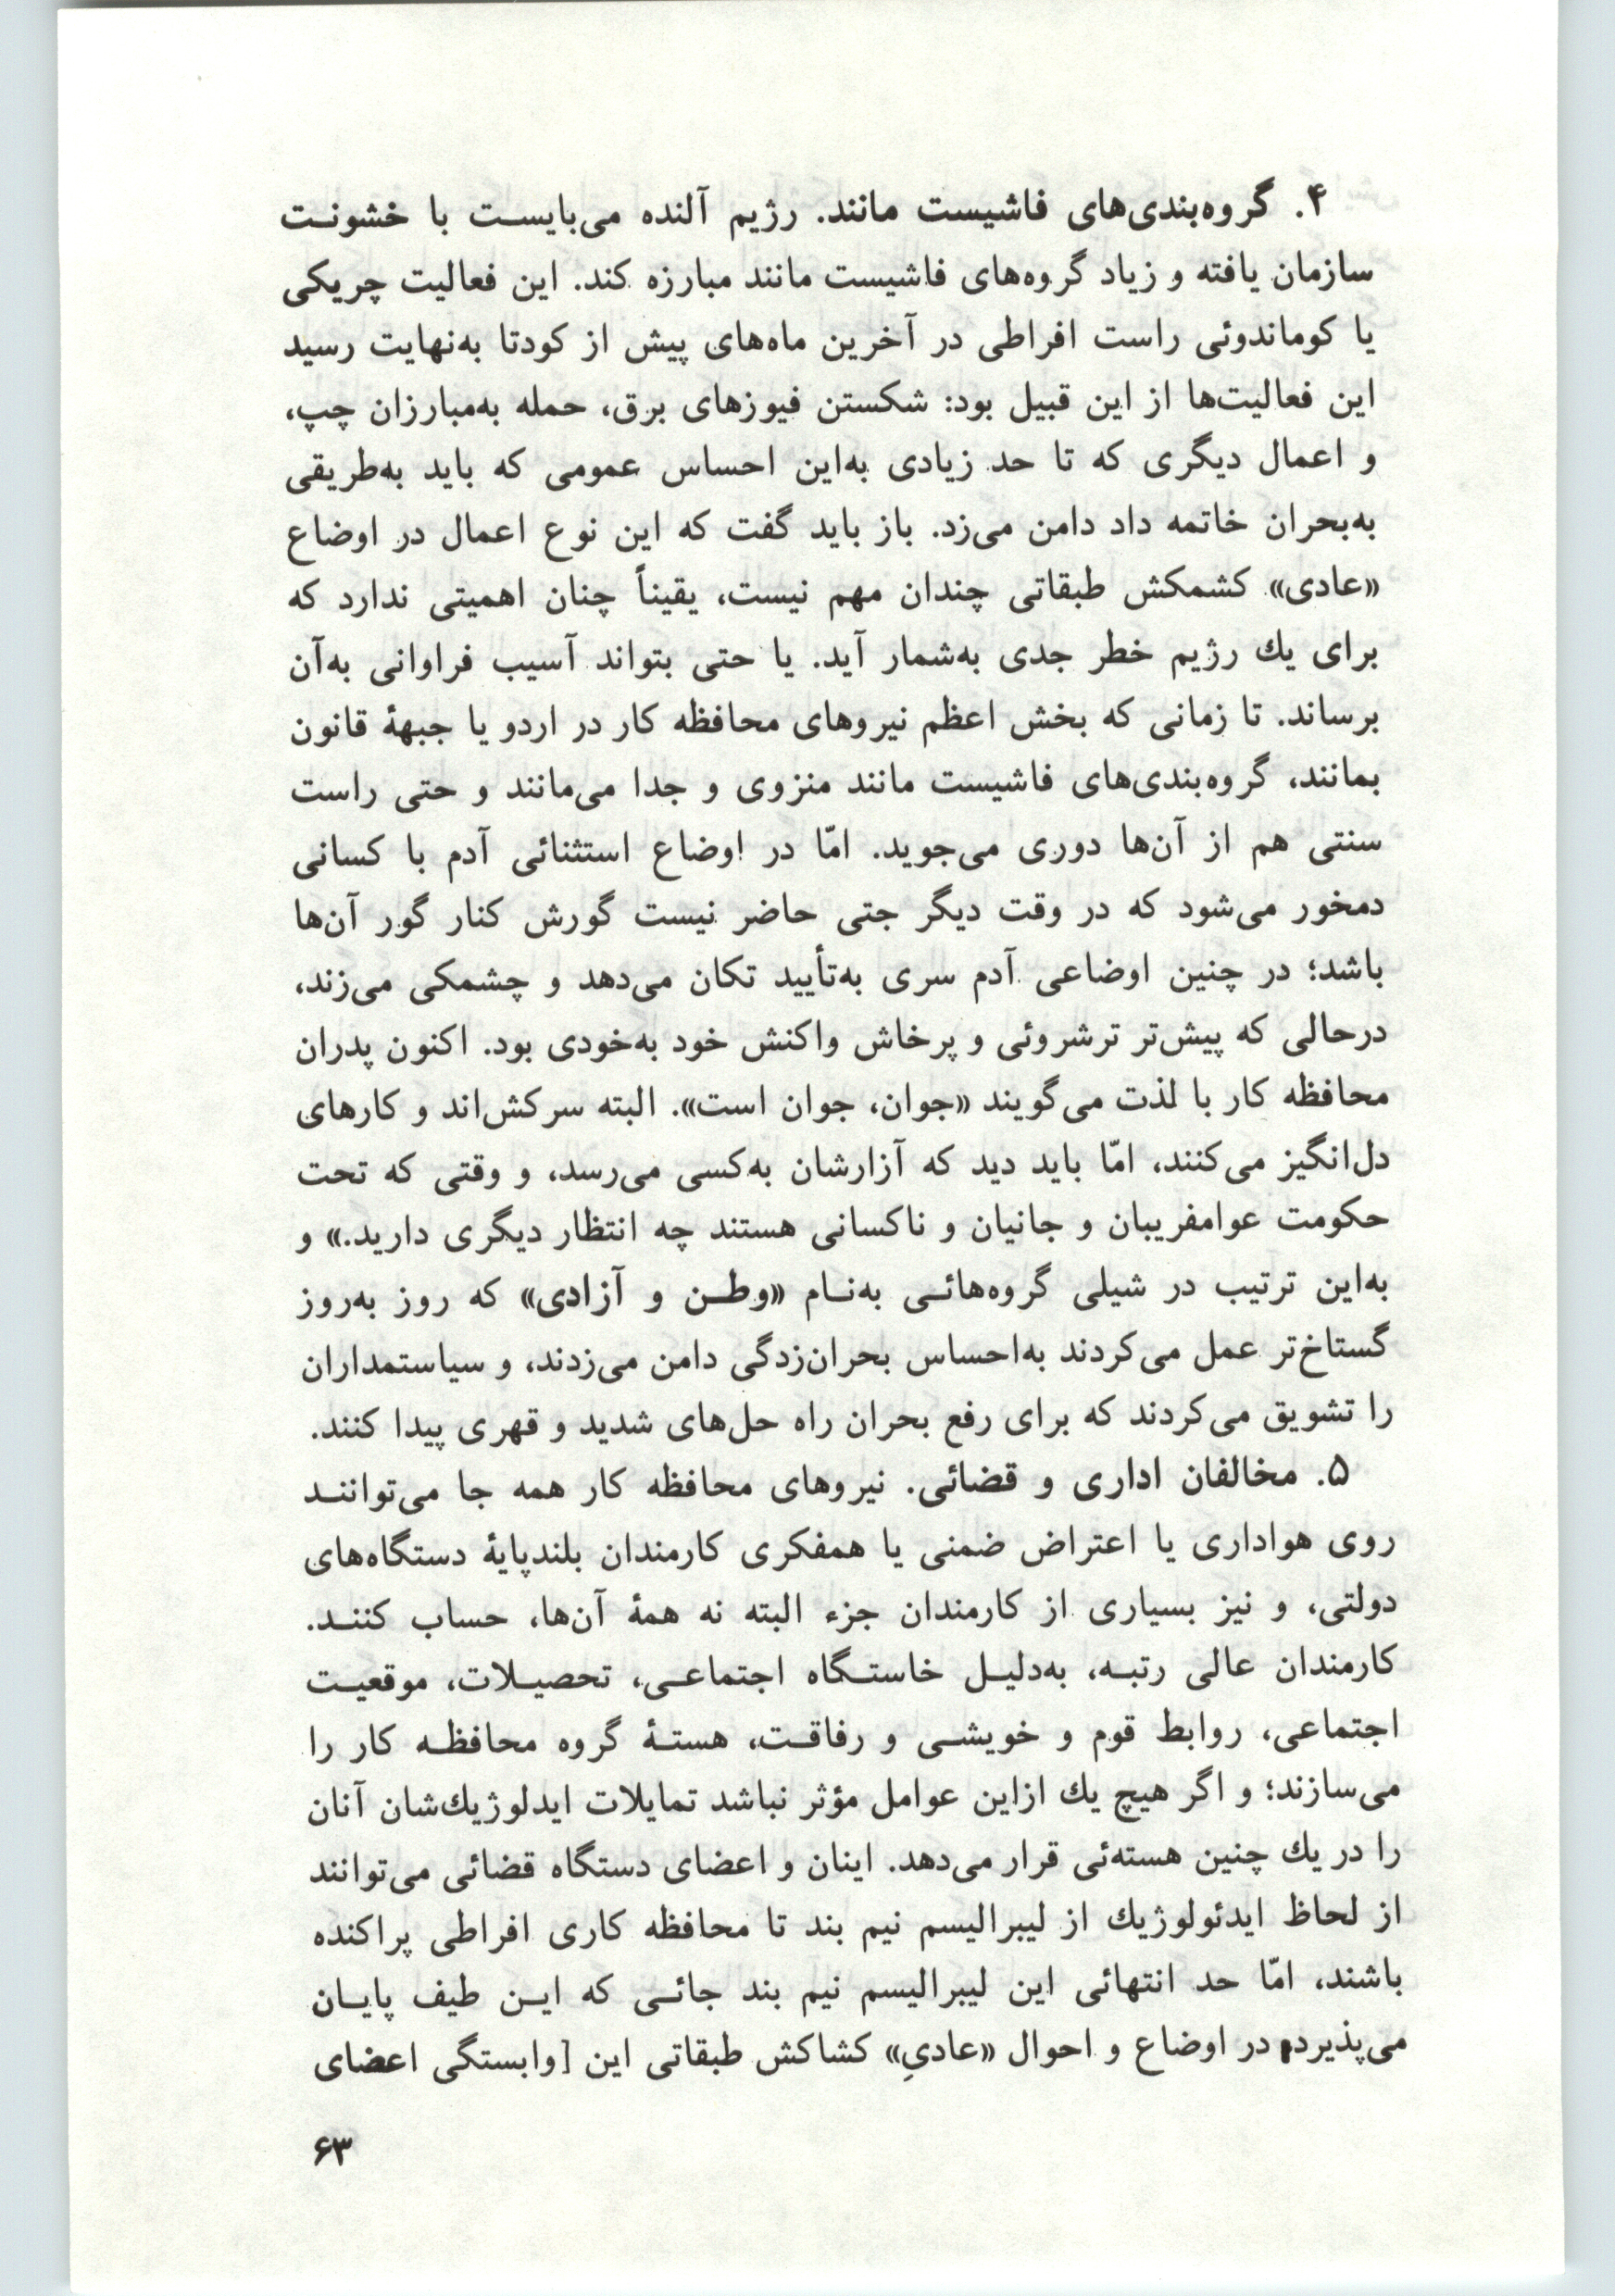 ۴. گروه‌بندی‌های فاشیست مانند. رژیم آلنده می‌بایست با خشونت
سازمان یافته و زیاد گروه‌های فاشیست مانند مبارزه کند. این فعالیت چریکی
یا کوماندوئی راست افراطی در آخرین ماه‌های پیش از کودتا به‌نهایت رسید
این فعالیت‌ها از این قبیل بود: شکستن فیوزهای برق، حمله به‌مبارزان چپ،
و اعمال دیگری که تا حد زیادی به‌این احساس عمومی که باید به‌طریقی
به‌بحران خاتمه داد دامن می‌زد. باز باید گفت که این نوع اعمال در اوضاع
«عادی» کشمکش طبقاتی چندان مهم نیست، یقیناً چنان اهمیتی ندارد که
برای یك رژیم خطر جدی به‌شمار آید. یا حتی بتواند آسیب فراوانی به‌آن
برساند. تا زمانی که بخش اعظم نیروهای محافظه کار در اردو یا جبههٔ قانون
بمانند، گروه‌بندی‌های فاشیست مانند منزوی و جدا می‌مانند و حتی راست
سنتی هم از آن‌ها دوری می‌جوید. امّا در اوضاع استثنائی آدم با کسانی
دمخور می‌شود که در وقت دیگر جتی حاضر نیست گورش کنار گور آن‌ها
باشد؛ در چنین اوضاعی آدم سری به‌تأیید تکان می‌دهد و چشمکی می‌زند،
درحالی که پیش‌تر ترشروئی و پرخاش واکنش خود به‌خودی بود. اکنون پدران
محافظه کار با لذت می‌گویند «جوان، جوان است». البته سرکش‌اند و کارهای
دل‌انگیز می‌کنند، امّا باید دید که آزارشان به‌کسی می‌رسد، و وقتی که تحت
حکومت عوامفریبان و جانیان و ناکسانی هستند چه انتظار دیگری دارید.» و
به‌این ترتیب در شیلی گروه‌هائی به‌نام «وطن و آزادی» که روز به‌روز
گستاخ‌تر عمل می‌کردند به‌احساس بحران‌زدگی دامن می‌زدند، و سیاستمداران
را تشویق می‌کردند که برای رفع بحران راه حل‌های شدید و قهری پیدا کنند.
۵. مخالفان اداری و قضائی. نیروهای محافظه کار همه جا می‌توانند
روی هواداری یا اعتراض ضمنی یا همفکری کارمندان بلندپایهٔ دستگاه‌های
دولتی، و نیز بسیاری از کارمندان جزء البته نه همهٔ آن‌ها، حساب کنند.
کارمندان عالی رتبه، به‌دلیل خاستگاه اجتماعی، تحصیلات، موقعیت
اجتماعی، روابط قوم و خویشی و رفاقت، هستهٔ گروه محافظه کار را
می‌سازند؛ و اگر هیچ یك ازاین عوامل مؤثر نباشد تمایلات ایدلوژیك‌شان آنان
را در یك چنین هسته‌ئی قرار می‌دهد. اینان و اعضای دستگاه قضائی می‌توانند
از لحاظ ایدئولوژیك از لیبرالیسم نیم بند تا محافظه کاری افراطی پراکنده
باشند، امّا حد انتهائی این لیبرالیسم نیم بند جائی که این طیف پایان
می‌پذیرد، در اوضاع و احوال «عادیِ» کشاکش طبقاتی این [وابستگی اعضای
۶۳